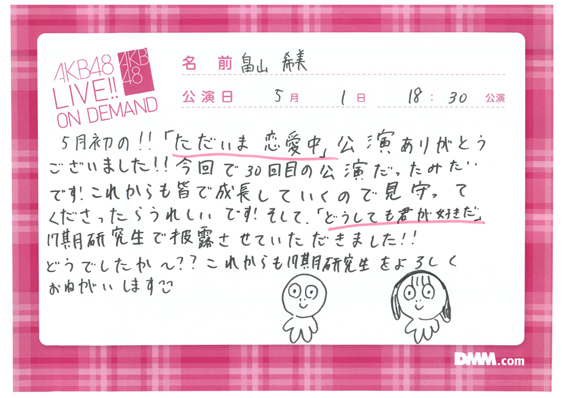 AKB48
LIVE!!
ON DEMAND
AKB
48
名 前 畠山 希美
公演日 5月 1日 18:30 公演
5月初の!!「ただいま 恋愛中」公演ありがとう
ございました!! 今回で30回目の公演だったみたい
です! これからも皆で成長していくので見守って
くださったらうれしいです! そして、「どうしても君が好きだ」
17期研究生で披露させていただきました!!
どうでしたか〜?? これからも17期研究生をよろしく
おねがいします
DMM.com